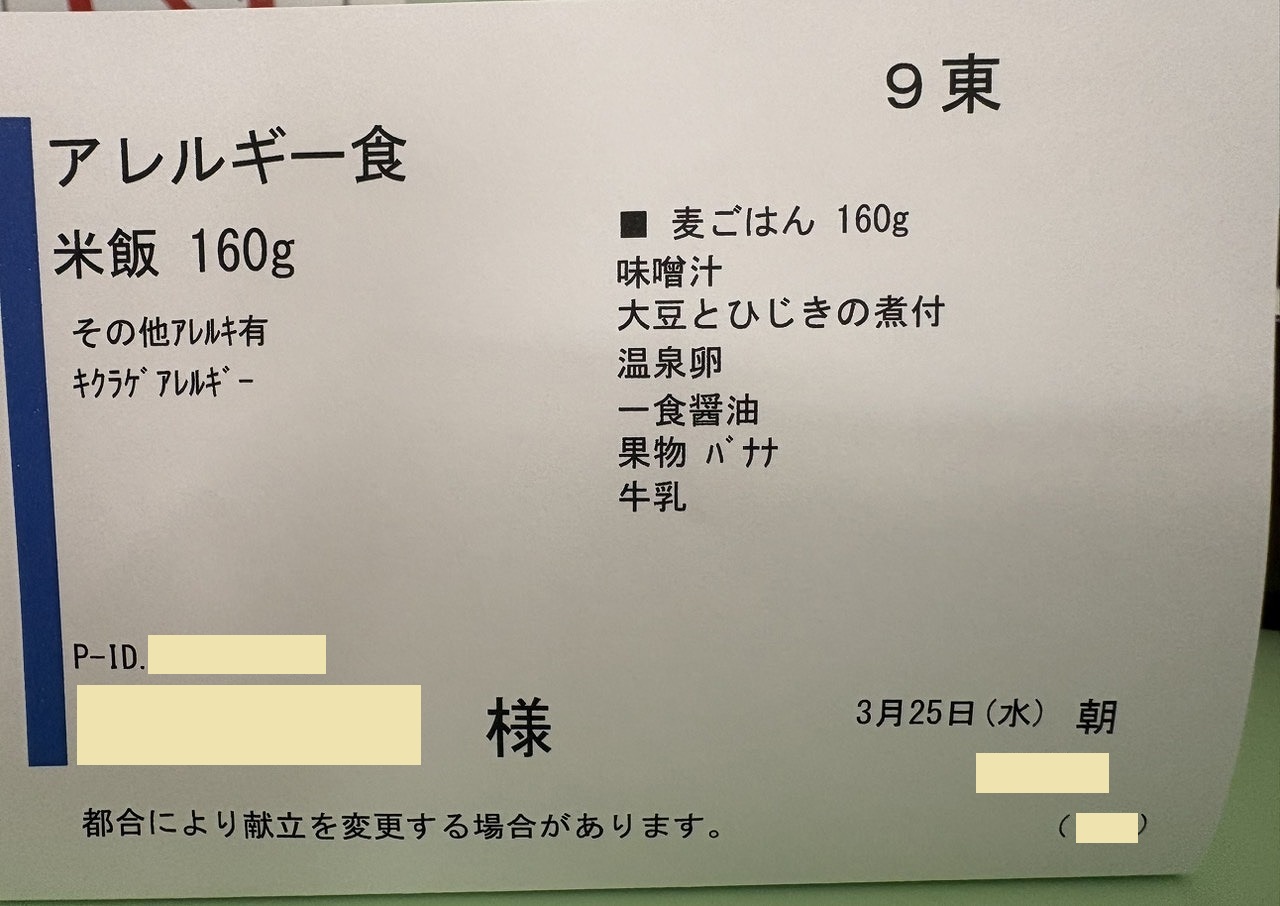 9東
アレルギー食
米飯 160g
その他ｱﾚﾙｷ有
ｷｸﾗｹﾞｱﾚﾙｷﾞｰ
■ 麦ごはん 160g
味噌汁
大豆とひじきの煮付
温泉卵
一食醤油
果物 ﾊﾞﾅﾅ
牛乳
P-ID.
様
3月25日(水) 朝
( )
都合により献立を変更する場合があります。